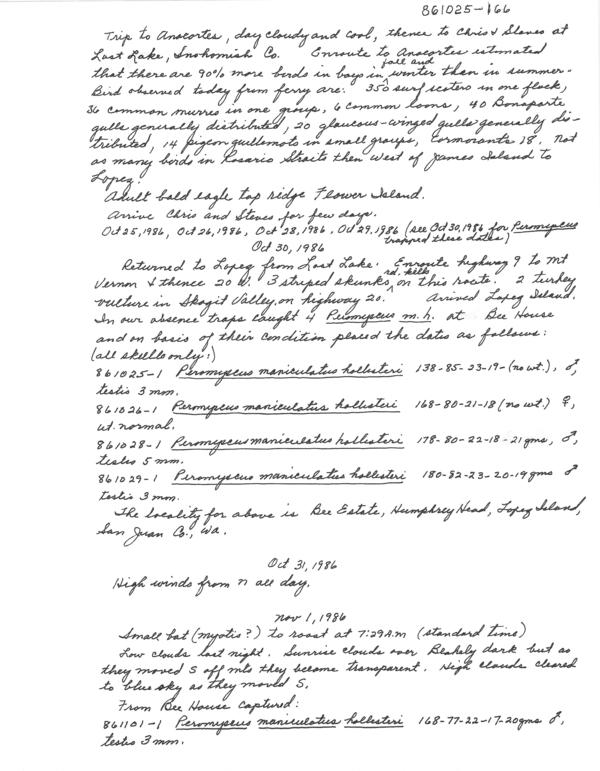 861025-166
Trip to Anacortes, day cloudy and cool, thence to Chris & Steves at
Lost Lake, Snohomish Co. Enroute to Anacortes estimated
that there are 90% more birds in bays in fall and winter than in summer.
Bird observed today from ferry are: 350 surf scoters in one flock,
36 common murres in one group, 6 common loons, 40 Bonaparte
gulls generally distributed, 20 glaucous-winged gulls generally dis-
tributed, 14 pigeon guillemots in small groups, Cormorants 18. Not
as many birds in Rosario Straits then west of James Island to
Lopez.
Adult bald eagle top ridge Flower Island.
Arrive Chris and Steves for few days.
Oct 25, 1986, Oct 26, 1986, Oct 28, 1986, Oct 29, 1986 (see Oct 30, 1986 for Peromyscus
trapped these dates)
Oct 30, 1986
Returned to Lopez from Lost Lake. Enroute highway 9 to Mt
Vernon & thence 20 W. 3 striped skunks, rd. kills on this route. 2 turkey
vulture in Skagit Valley, on highway 20. Arrived Lopez Island.
In our absence traps caught 4 Peromyscus m. h. at Bee House
and on basis of their condition placed the dates as follows:
(all skulls only:)
861025-1 Peromyscus maniculatus hollisteri 138-85-23-19-(no wt.), ♂,
testis 3 mm.
861026-1 Peromyscus maniculatus hollisteri 168-80-21-18 (no wt.) ♀,
ut. normal.
861028-1 Peromyscus maniculatus hollisteri 178-80-22-18-21gms, ♂,
testis 5 mm.
861029-1 Peromyscus maniculatus hollisteri 180-82-23-20-19gms ♂
testis 3 mm.
The locality for above is Bee Estate, Humphrey Head, Lopez Island,
San Juan Co., Wa.
Oct 31, 1986
High winds from N all day.
Nov 1, 1986
Small bat (myotis?) to roost at 7:29 A.M (standard time)
Low clouds last night. Sunrise clouds over Blakely dark but as
they moved S off mts they became transparent. High clouds cleared
to blue sky as they moved S.
From Bee House captured:
861101-1 Peromyscus maniculatus hollisteri 168-77-22-17-20gms ♂,
testis 3 mm.